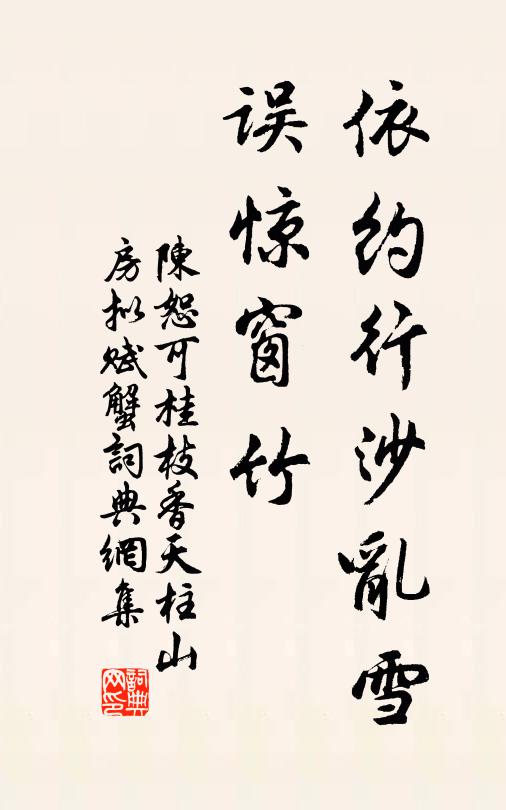 依约行沙亂雪
误惊窗竹
陳恕可桂枝香天柱山
房拟赋蟹詞典網集
詞典
网印